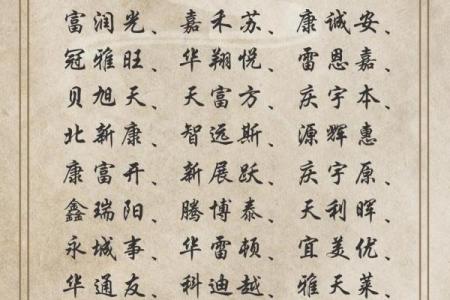 富润光、嘉禾苏、康诚安、
冠雅旺、华翔悦、雷恩嘉、
贝旭天、天富方、庆宇本、
北新康、智远斯、源辉惠
康富开、新展跃、庆宇原、
鑫瑞阳、腾博泰、天利晖、
永城事、华雷顿、宜美优、
华通友、科迪越、雅天莱、